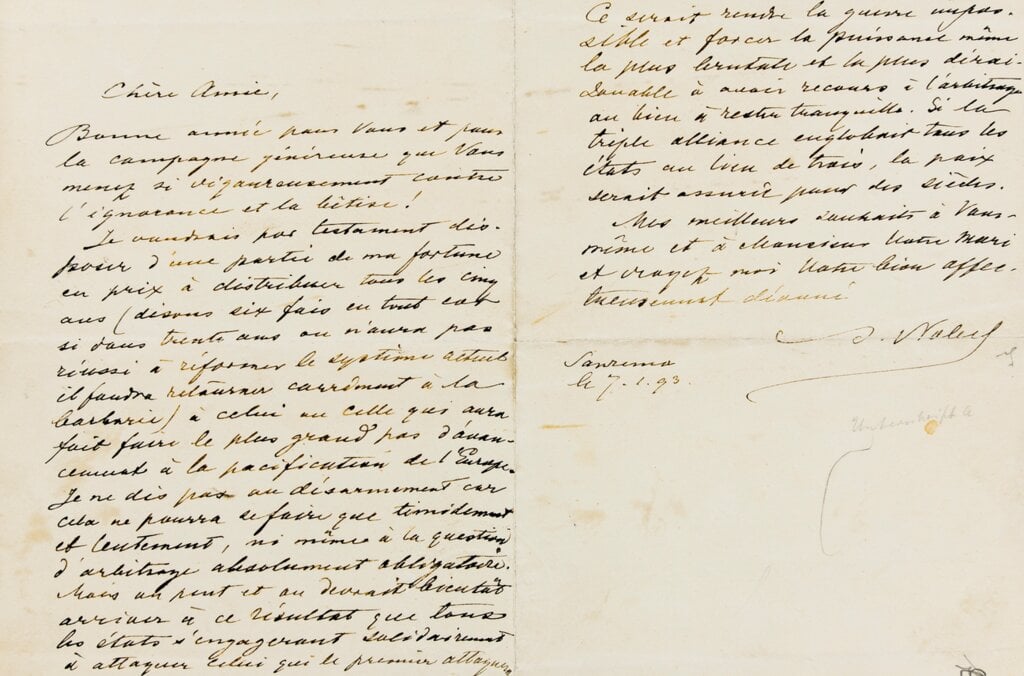 Chère Amie,
Bonne année pour Vous et pour
la campagne généreuse que Vous
menez si vigoureusement contre
l'ignorance et la bêtise!
Je voudrais par testament dis-
poser d'une partie de ma fortune
en prix à distribuer tous les cinq
ans (disons six fois en tout car
si dans trente ans on n'aura pas
réussi à réformer le système actuel
il faudra retourner carrément à la
barbarie) à celui ou celle qui aura
fait faire le plus grand pas d'avan-
cement à la pacification de l'Europe.
Je ne dis pas au désarmement car
cela ne pourra se faire que timidement
et lentement, ni même à la question
d'arbitrage absolument obligatoire.
Mais on peut et on devrait bientôt
arriver à ce résultat que tous
les états s'engagerant solidairement
à attaquer celui qui le premier attaquera
Ce serait rendre la guerre impos-
sible et forcer la puissance même
la plus brutale et la plus dérai-
sonable à avoir recours à l'arbitrage
ou bien à rester tranquille. Si la
triple alliance englobait tous les
états au lieu de trois, la paix
serait assurée pour des siècles.
Mes meilleurs souhaits à Vous-
même et à Monsieur Votre Mari
et croyez moi Votre bien affec-
tueusement dévoué
A. Nobel
Sanremo
le 7.1.93.